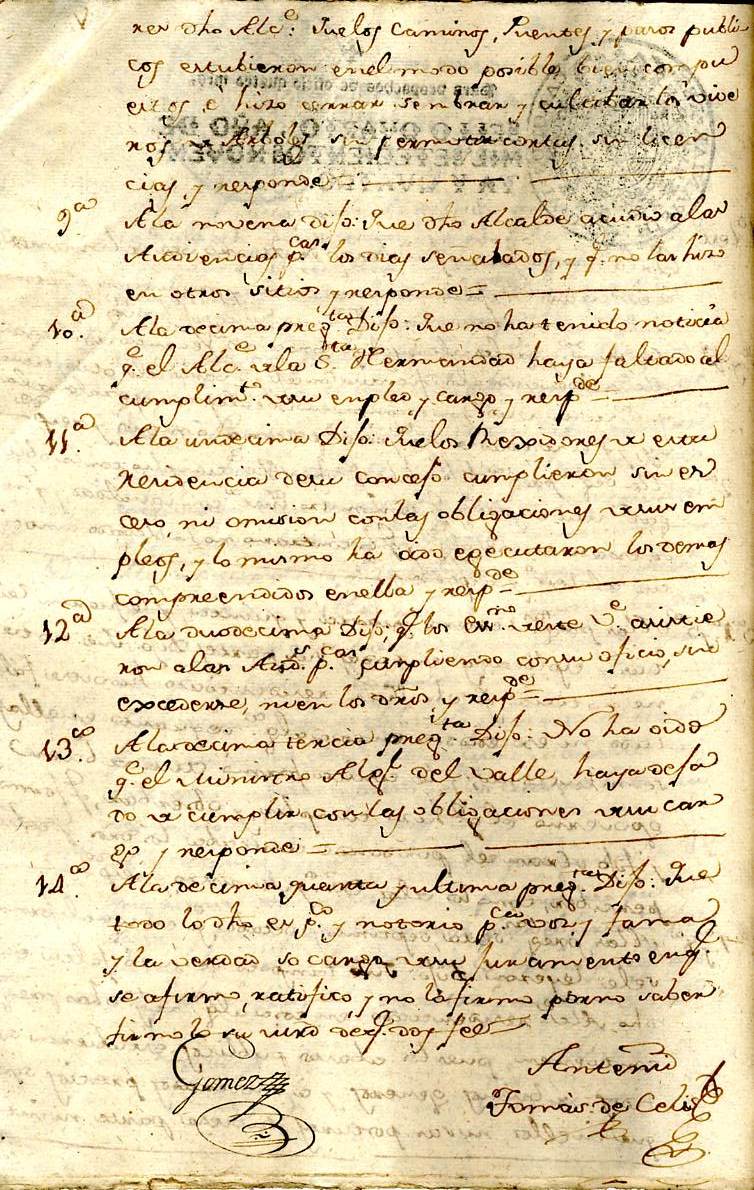 res dho Alc.e Que los Caminos, Puentes, y pasos publi
cos estubieron en el modo posible bien compu
estos, e hizo cerrar, sembrar y cultibar los vive
ros de Arboles sin permitir cortas sin licen
cias, y responde
9.a A la novena Dijo: Que dho Alcalde acudio a las
Audiencias p.cas los dias señalados, y q.e no las hizo
en otros sitios y responde =
10.a A la decima preg.ta Dijo: Que no ha tenido noticia
q.e el Alc.e de la S.ta Hermandad haya faltado al
cumplim.to de su empleo, y cargo, y resp.de =
11.a A la undecima Dijo: Que los Rexidores de esta
residencia de su concejo cumplieron sin ex
ceso, ni omision con las obligaciones de sus em
pleos, y lo mismo ha oido egecutaron los demas
comprendidos en ella y resp.de =
12.a A la duodecima Dijo, q.e los Ess.nos de este V.e asistie
ron a las Aud.s p.cas cumpliendo con su oficio, sin
excederse, ni en los dros, y resp.de =
13.a A la decima tercia preg.ta Dijo: No ha oido
q.e el Ministro Alg.l del Valle, haya deja
do de cumplir con las obligaciones de su car
go y responde =
14.a A la decima quarta y ultima preg.ta Dijo: Que
todo lo dho es p.co y notorio p.ca voz, y fama
y la verdad so cargo de su juramento en q.e
se afirmo, ratifico, y no lo firmo por no saber
firmolo su mrd de q.e doy fee
Gomez
Antemi
Tomas de Celis